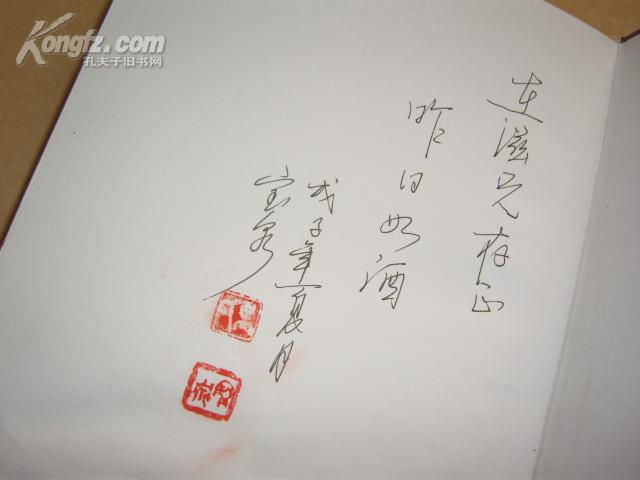 Kongfz.com
孔夫子旧书网
连滋兄存正
昨日如酒
戊子年夏月
宝泉